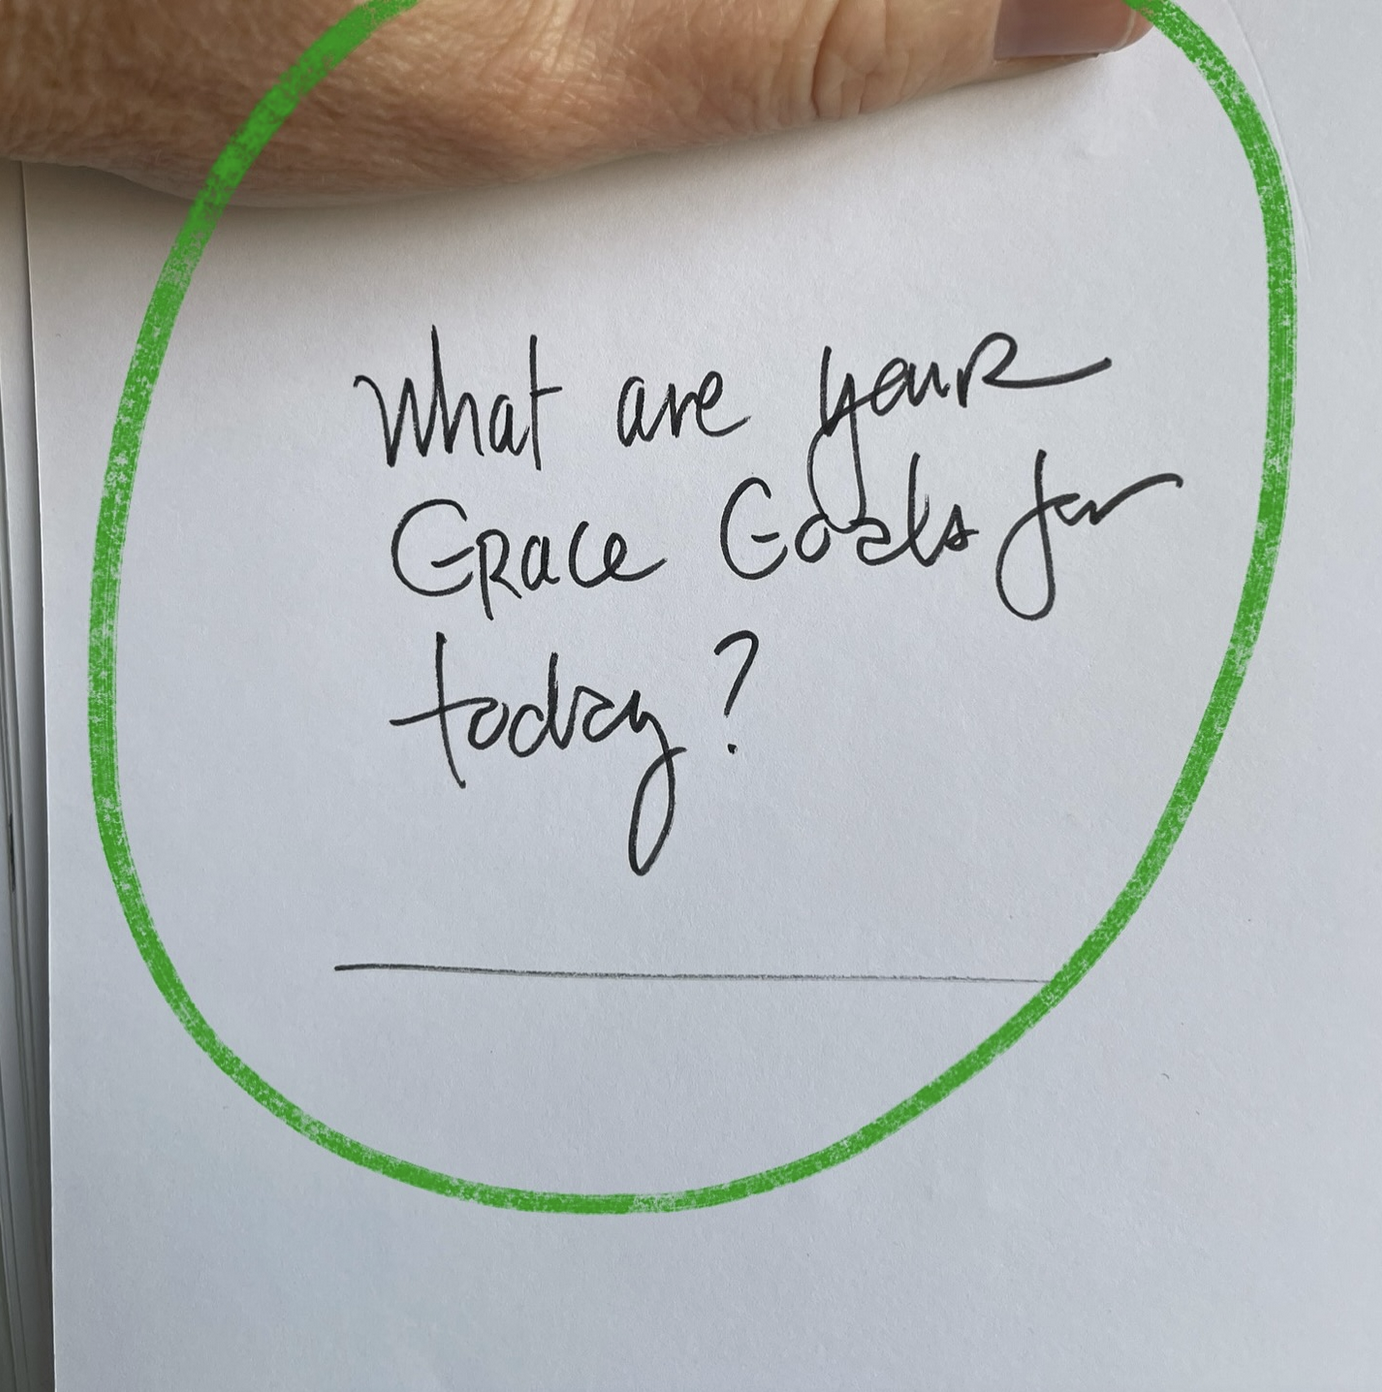 What are your
Grace Goals for
today?